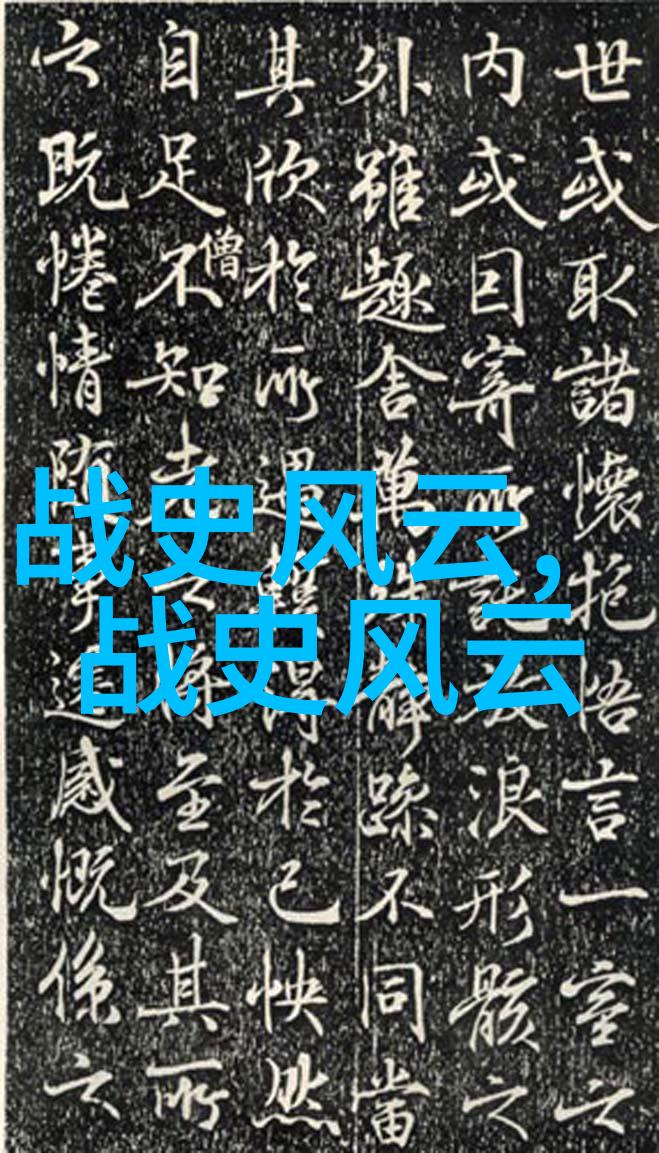 世或取諸懷抱悟言一室之
内或因寄所託放浪形骸之
外雖趣舍萬殊靜躁不同當
其欣於所遇輙得於己怏然
自足不知老之将至及其所
僧
之既惓情随事遷感慨係之
战史风云,
战史风云